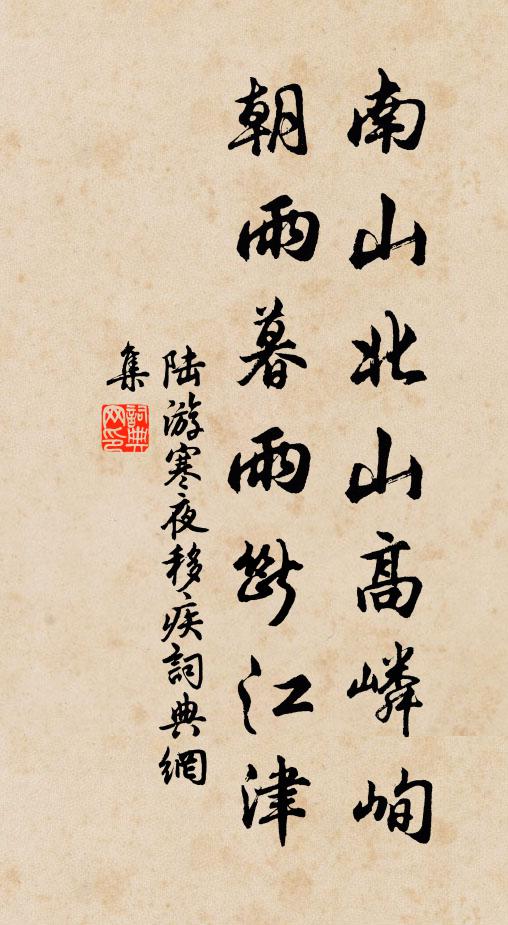 南山北山高嶙峋
朝雨暮雨斷江津
陆游寒夜移疾詞典網
集
詞典网印